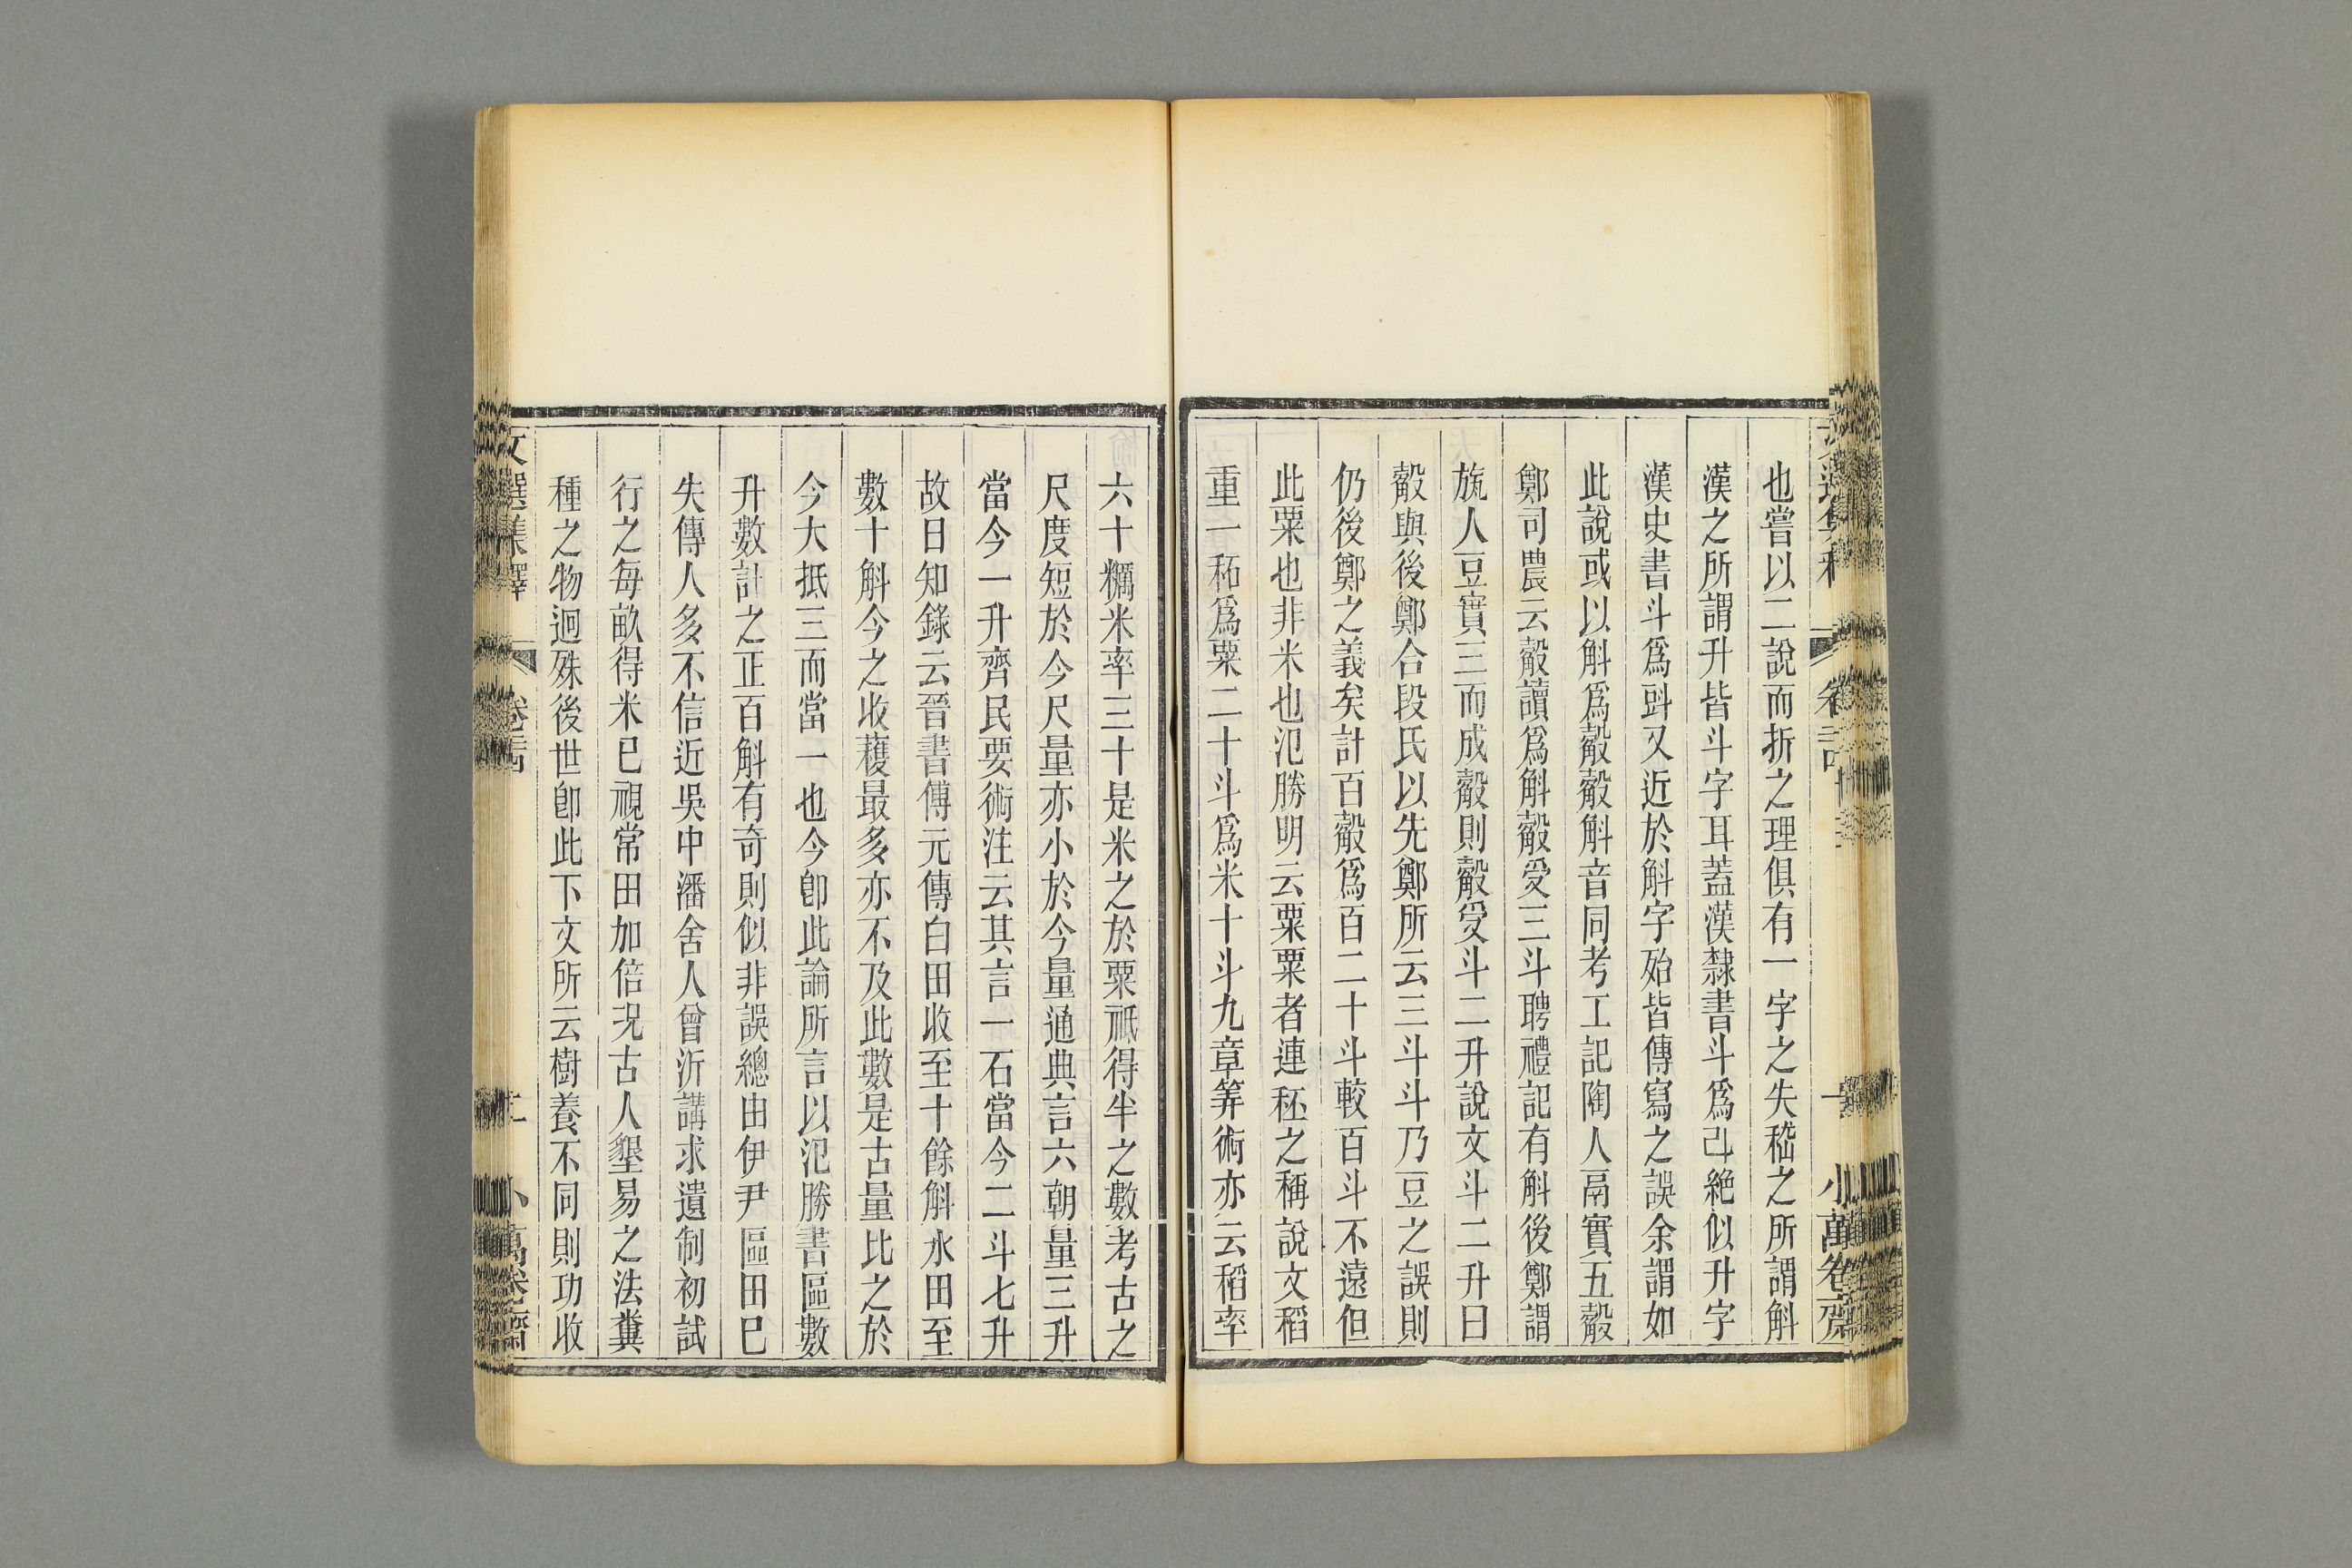 也嘗以二說而折之理俱有一字之失嵇之所謂斛
漢之所謂升皆斗字耳蓋漢隸書斗爲㪷絶似升字
漢史書斗爲㪷又近於斛字殆皆傳寫之誤余謂如
此說或以斛爲觳觳斛音同考工記陶人鬲實五觳
鄭司農云觳讀爲斛觳受三斗聘禮記有斛後鄭謂
旊人豆實三而成觳則觳受斗二升說文斗二升曰
觳與後鄭合段氏以先鄭所云三斗斗乃豆之誤則
仍後鄭之義矣計百觳爲百二十斗較百斗不遠但
此粟也非米也氾勝明云粟粟者連秠之稱說文稻
重一䄷爲粟二十斗爲米十斗九章筭術亦云稻率
六十糲米率三十是米之於粟祗得半之數考古之
尺度短於今尺量亦小於今量通典言六朝量三升
當今一升齊民要術注云其言一石當今二斗七升
故日知錄云晉書傅元傳白田收至十餘斛水田至
數十斛今之收穫最多亦不及此數是古量比之於
今大抵三而當一也今卽此論所言以氾勝書區數
升數計之正百斛有奇則似非誤總由伊尹區田已
失傳人多不信近吳中潘舍人曾沂講求遺制初試
行之每畝得米已視常田加倍況古人墾易之法糞
種之物迥殊後世卽此下文所云樹養不同則功收
文選集釋
卷
二
小萬卷齋